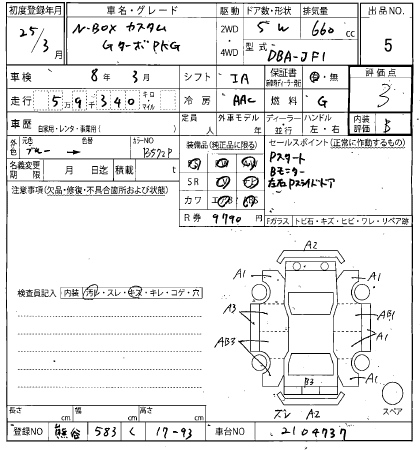 初度登録年月 車名・グレード 駆動 ドア数・形状 排気量 出品NO.
25/3月 N-BOX カスタム GターボPKG 2WD 4WD 5W 660cc 5
型式 DBA-JF1
車検 8年 3月 シフト IA 保証書 有・無 評価点
走行 59340 キロ マイル 冷房 AAC 燃料 G 3
車歴 自家用・レンタ・事業用( ) 定員 人 外車モデル 年 ディーラー 並行 ハンドル 左・右 内装評価 B
外色 元色 ブルー→ 色替 カラーNO B592P 装備品(純正品に限る) セールスポイント(正常に作動するもの)
名義変更期限 月 日迄 積載 t SR
Pスタート
Bモニター
左右Pスライドドア
注意事項(欠品・修復・不具合箇所および状態) カワ
R券 9790 円 Fガラス トビ石・キズ・ヒビ・ワレ・リペア跡
検査員記入 内装 汚レ・スレ・キズ・キレ・コゲ・穴
A2
A1 A1
A3 AB1
AB3 A1
A1 A1
B3
A2
スペア
長さ cm 幅 cm 高さ cm
登録NO 熊谷 583 く 17-93 車台NO 2104737